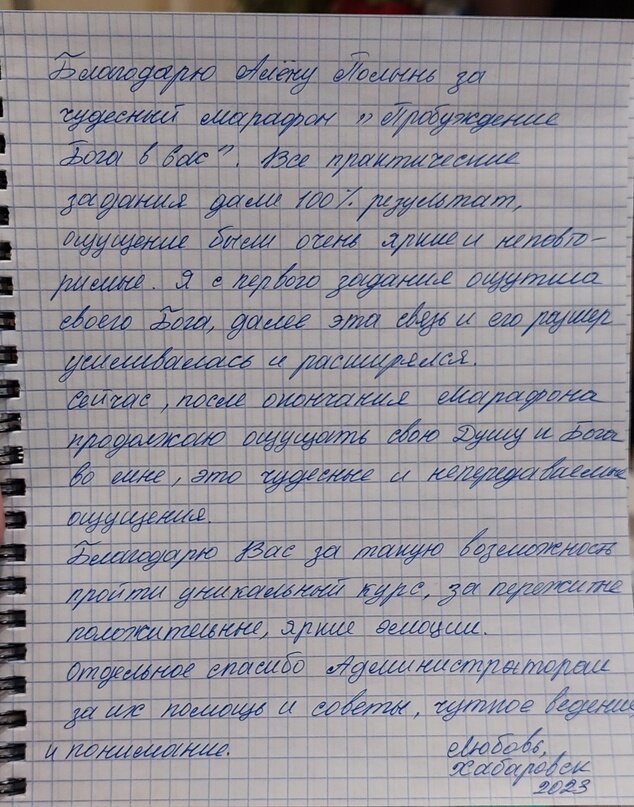 Благодарю Алёну Полынь за
чудесный марафон "Пробуждение
Бога в вас". Все практические
задания дали 100% результат,
ощущение были очень яркие и неповто-
римые. Я с первого задания ощутила
своего Бога, далее эта связь и его размер
усиливалась и расширялся.
Сейчас, после окончания марафона
продолжаю ощущать свою Душу и Бога
во мне, это чудесные и непередаваемые
ощущения.
Благодарю Вас за такую возможность
пройти уникальный курс, за пережитые
положительные, яркие эмоции.
Отдельное спасибо Администраторам
за их помощь и советы, чуткое ведение
и понимание.
Любовь,
Хабаровск
2023